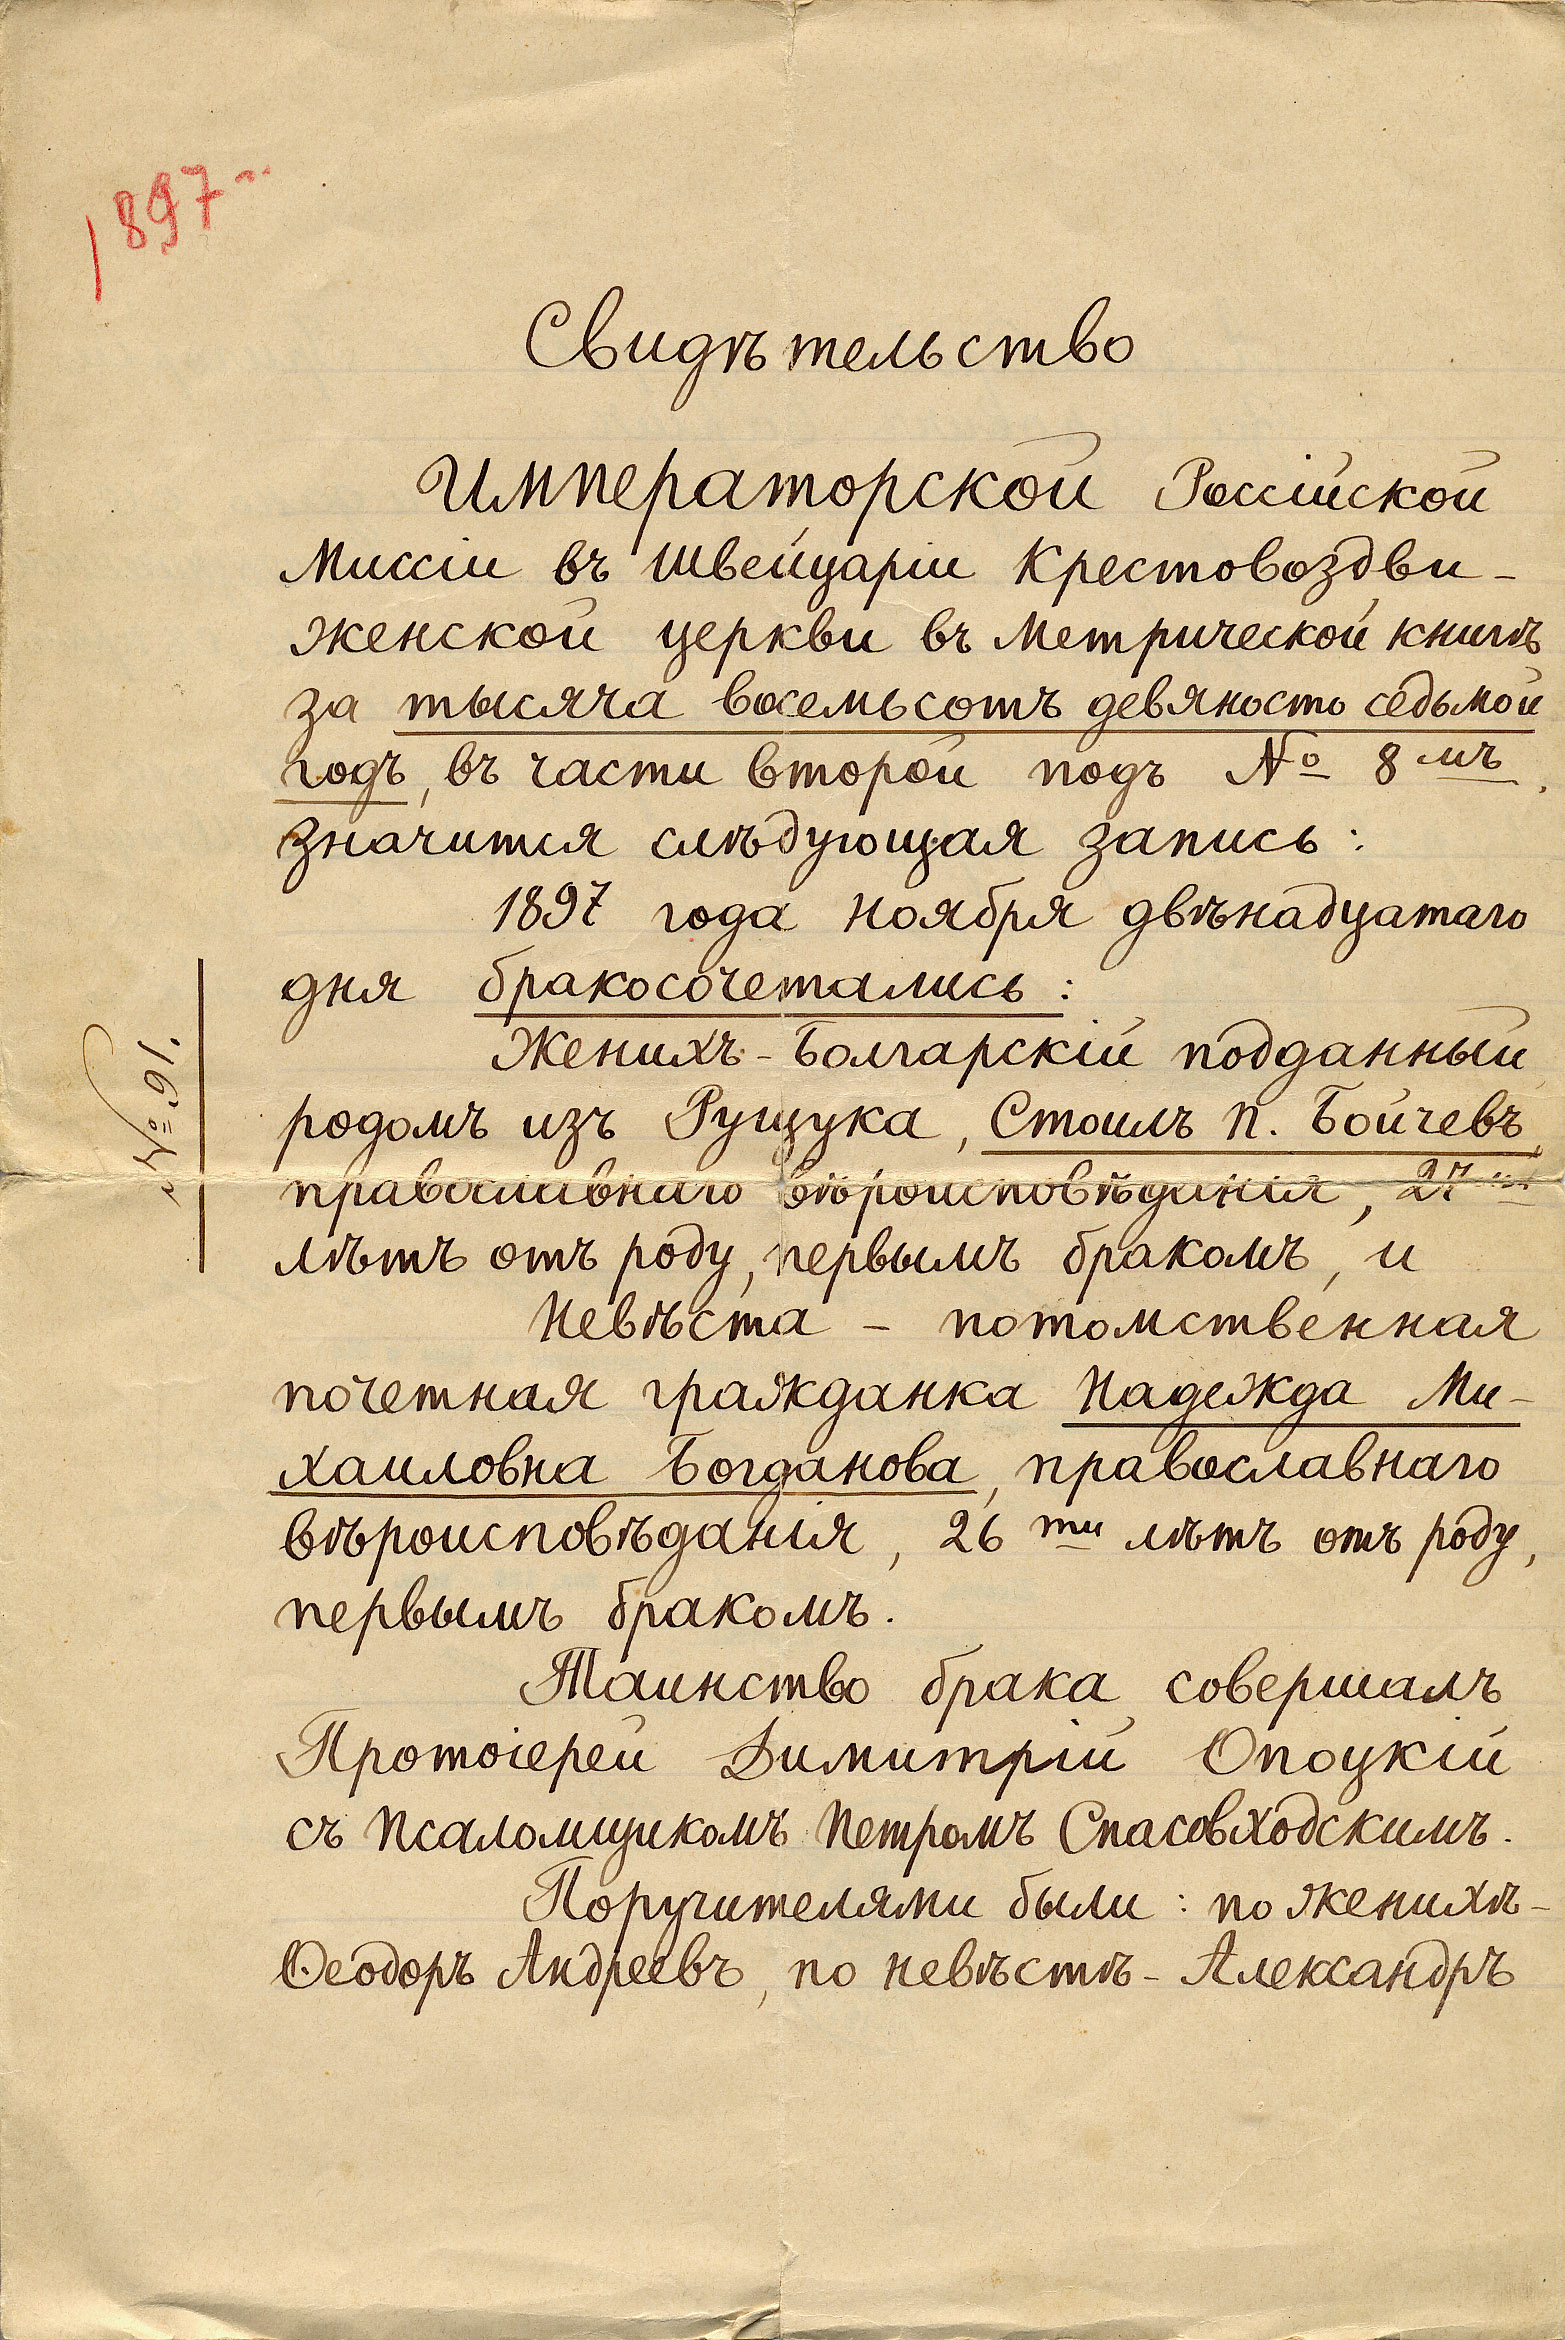 1897
Свидѣтельство
Императорской Россiйской
Миссiи въ Швейцарiи Крестовоздви-
женской церкви въ Метрической книгѣ
за тысяча восемьсотъ девяносто седьмой
годъ, въ части второй подъ № 8 мъ,
значится слѣдующая запись:
1897 года ноября двѣнадцатаго
дня бракосочетались:
Женихъ - Болгарскiй подданный
№ 91.
родомъ изъ Рущука, Стоилъ П. Бойчевъ,
православнаго вѣроисповѣданiя, 27
лѣтъ отъ роду, первымъ бракомъ, и
Невѣста - потомственная
почетная гражданка Надежда Ми-
хаиловна Богданова, православнаго
вѣроисповѣданiя, 26 ти лѣтъ отъ роду,
первымъ бракомъ.
Таинство брака совершалъ
Протоiерей Димитрiй Опоцкiй
съ Псаломщикомъ Петромъ Спасовходскимъ.
Поручителями были: по женихѣ-
Ѳеодоръ Андреевъ, по невѣстѣ - Александръ